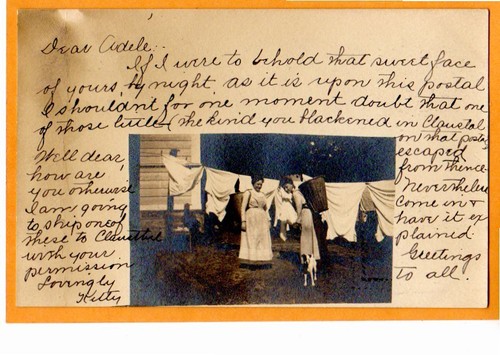 Dear Adele:
If I were to behold that sweet face
of yours, by night, as it is upon this postal
I shouldn't for one moment doubt that one
of those little (the kind you blackened in Claustal
on that postal
escaped
from thence.
Nevertheless
come in &
have it ex
plained.
Greetings
to all.
Well dear,
how are
you otherwise
I am going
to ship one of
these to Clausthal
with your
permission
Lovingly
Kitty